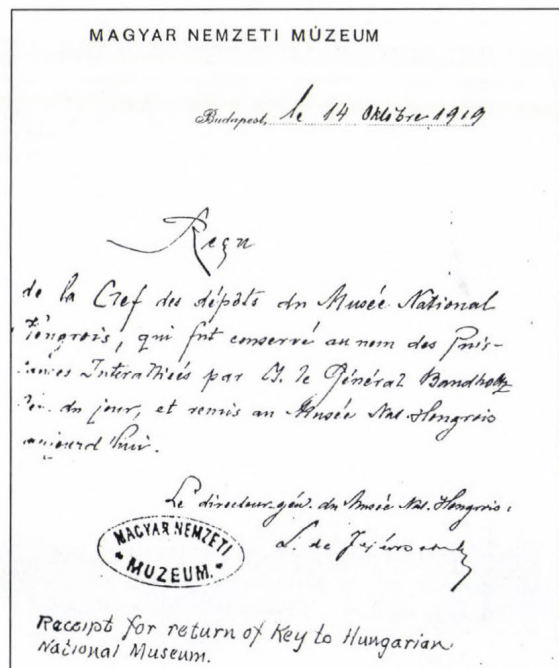 MAGYAR NEMZETI MÚZEUM
Budapest, le 14 Oktobre 1919
Reçu
de la Clef des dépôts du Musée National
Hongrois, qui fut conservé au nom des Puis-
sances Interalliées par M. le Général Bandholtz
du jour, et remis au Musée Nat. Hongrois
aujourd'hui.
Le directeur-gén. du Musée Nat. Hongrois:
L. de
MAGYAR NEMZETI
MUZEUM.
Receipt for return of Key to Hungarian
National Museum.